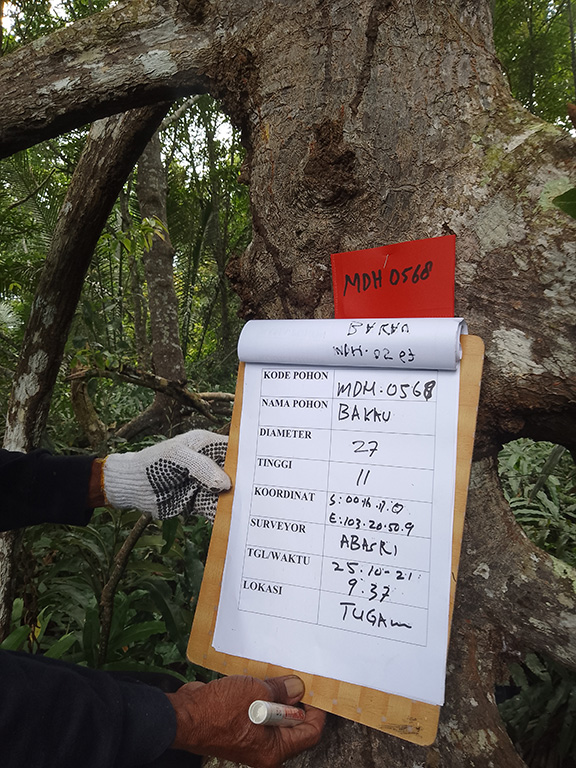 MDH 0568
BAKAU
KODE POHON MDM.0568
NAMA POHON BAKAU
DIAMETER 27
TINGGI 11
KOORDINAT
E:103.20.50.9
SURVEYOR ABASRI
TGL/WAKTU 25.10-21.
9:37
LOKASI TUGAM